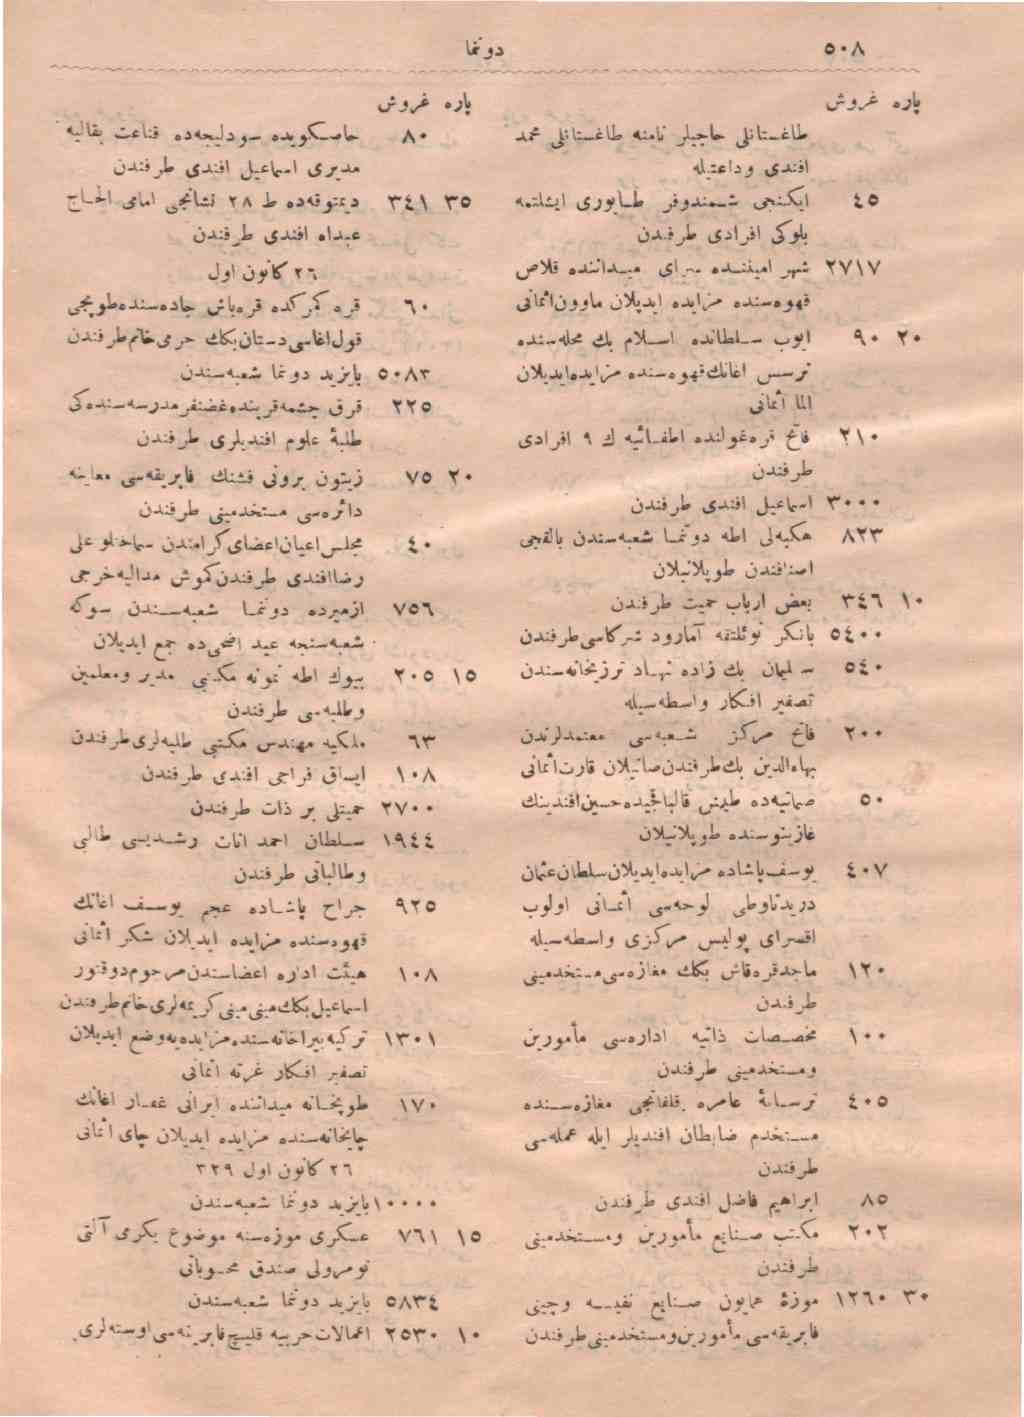 ٥٠٨
دوننما
پاره غروش
طاغستانلی حاجیلر نامنه طاغستانلی محمد
افندی وداعتیله
٤٥ ایكنجی شمندوفر طابوری ایشلتمه
بلوكی افرادی طرفندن
٢٧١٧ شهر امینندە سرای میداننده قلاص
قهوه‌سنده مزایده ایدیلان ماوون اثمانی
٢٠ ٩٠ ایوب سلطانده اسلام بك محله‌سنده
نرسس اغانك قهوه‌سنده مزایده ایدیلان
الما اثمانی
٢١٠ فاتح قره‌غولنده اطفائیه ك ٩ افرادی
طرفندن
٣٠٠٠ اسماعیل افندی طرفندن
٨٢٣ هكبه‌لی اطه دوننما شعبه‌سندن بالقجی
اصنافندن طوپلانیلان
١٠ ٣٤٦ بعض ارباب حمیت طرفندن
٥٤٠٠ بانكر نوئلتفه آمارود شركاسی طرفندن
٥٤٠ سلیمان بك زاده نهاد ترزیخانه‌سندن
تصفیر افكار واسطه‌سیله
٢٠٠ فاتح مركز شعبه‌سی معتمدلرندن
بهاءالدین بك طرفندن صاتیلان قارت اثمانی
٥٠ صماتیه‌ده طیش قالپاقجیده حسین افندینك
غازینوسنده طوپلانیلان
٤٠٧ یوسف پاشاده مزایده ایدیلان سلطان عثمان
دریدناوطی لوحه‌سی اثمانی اولوب
اقسرای پولیس مركزی واسطه‌سیله
١٢٠ ماجد قره‌قاش بكك مغازه‌سی مستخدمینی
طرفندن
١٠٠ مخصصات ذاتیه اداره‌سی مأمورین
ومستخدمینی طرفندن
٤٠٥ ترسانۀ عامره قلفاتجی مغازه‌سنده
مستخدم ضابطان افندیلر ایله عمله‌سی
طرفندن
٨٥ ابراهیم فاضل افندی طرفندن
٢٠٢ مكتب صنایع مأمورین ومستخدمینی
طرفندن
٣٠ ١٢٦٠ موزۀ همایون صنایع نفیسه وچینی
فابریقه‌سی مأمورین ومستخدمینی طرفندن
پاره غروش
٨٠ خاصكویده سودلیجه‌ده قناعت بقالیه
مدیری اسماعیل افندی طرفندن
٣٥ ٣٤١ دیمتوقه‌ده ط ٢٨ نشانجی امامی الحاج
عبداه افندی طرفندن
٢٦ كانون اول
٦٠ قره كمركده قره‌باش جاده‌سنده طوپجی
قول اغاسی دستان بكك حرمی خانم طرفندن
٥٠٨٣ بایزید دوننما شعبه‌سندن
٢٢٥ قرق چشمه قربنده غضنفر مدرسه‌سنده‌كی
طلبۀ علوم افندیلری طرفندن
٢٠ ٧٥ زیتون برونی فشنك فابریقه‌سی معاینه
دائره‌سی مستخدمینی طرفندن
٤٠ مجلس اعیان اعضای كرامندن سماحتلو علی
رضا افندی طرفندن كموش مدالیه خرجی
٧٥٦ ازمیرده دوننما شعبه‌سندن سوكه
شعبه‌سنجه عید اضحی‌ده جمع ایدیلان
١٥ ٢٠٥ بیوك اطه نمونه مكتبی مدیر ومعلمین
وطلبه‌سی طرفندن
٦٣ ملكیه مهندس مكتبی طلبه‌لری طرفندن
١٠٨ ایساق فراجی افندی طرفندن
٢٧٠٠ حمیتلی بر ذات طرفندن
١٩٤٤ سلطان احمد اناث رشدیسی طالبی
وطالباتی طرفندن
٩٢٥ جراح پاشاده عجم یوسف اغانك
قهوه‌سنده مزایده ایدیلان شكر اثمانی
١٠٨ هیئت اداره اعضاسندن مرحوم دوقتور
اسماعیل بكك مینی مینی كریمه‌لری خانم طرفندن
١٣٠١ تركیه بیراخانه‌سنده مزایده‌یه وضع ایدیلان
تصفیر افكار غزته اثمانی
١٧٠ طوپخانه میداننده ایرانی غفار اغانك
چایخانه‌سنده مزایده ایدیلان چای اثمانی
٢٦ كانون اول ٣٢٩
١٠٠٠٠ بایزید دوننما شعبه‌سندن
١٥ ٧٦١ عسكری موزه‌سنه موضوع یكرمی آلتی
نومرولی صندق محتویاتی
٥٨٣٤ بایزید دوننما شعبه‌سندن
١٠ ٢٥٣٠ اعمالات حربیه قلیچ فابریقه‌سی اوسته‌لری